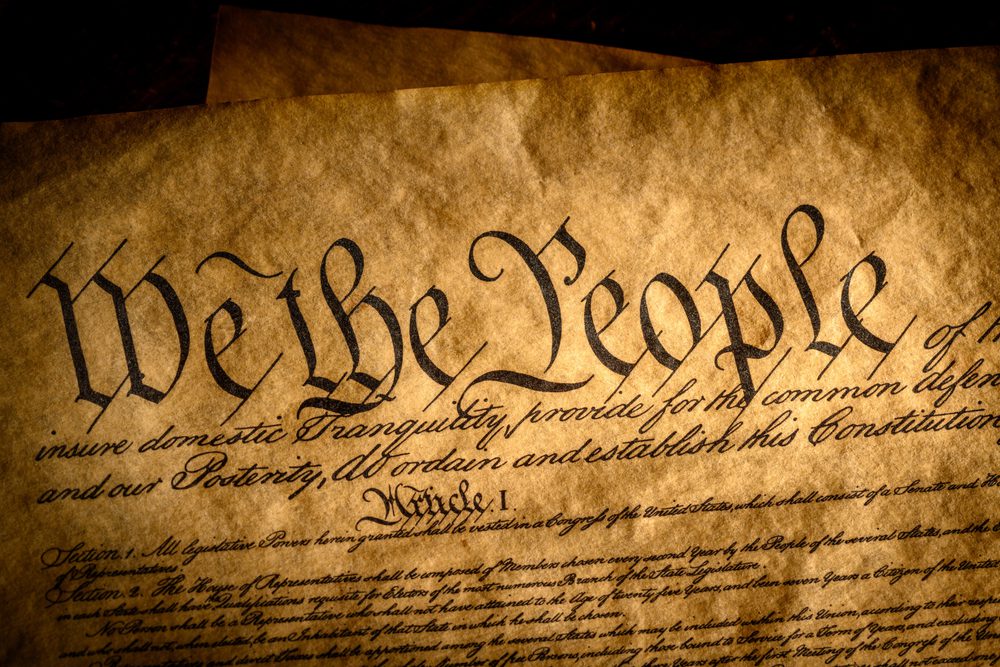 We the People of
insure domestic Tranquility, provide for the common defen
and our Posterity, do ordain and establish this Constitution
Article. I.
Section. 1. All legislative Powers herein granted shall be vested in a Congress of the United States, which shall consist of a Senate and
of Representatives.
Section. 2. The House of Representatives shall be composed of Members chosen every second Year by the People of the several States, and the
in each State shall have Qualifications requisite for Electors of the most numerous Branch of the State Legislature.
No Person shall be a Representative who shall not have attained to the Age of twenty five Years, and been seven Years a Citizen of the United
and who shall not, when elected, be an Inhabitant of that State in which he shall be chosen.
Representatives and direct Taxes shall be apportioned among the several States which may be included within this Union, according to their respe
Number of free Persons, including those bound to Service for a Term of Years, and excluding
Years after the first Meeting of the Congress of the Un